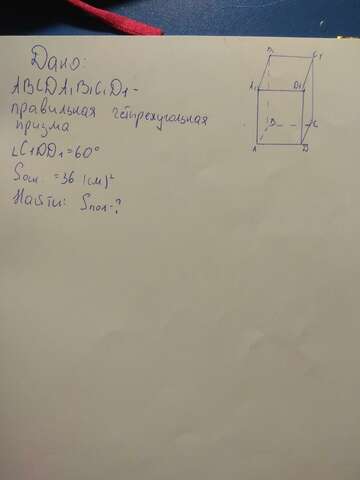 Дано:
ABCDA₁B₁C₁D₁ -
правильная четырехугольная
призма
∠C₁DD₁ = 60°
Sосн. = 36 (см)²
Найти: Sпол-?
C₁
A₁ D₁
B C
A D